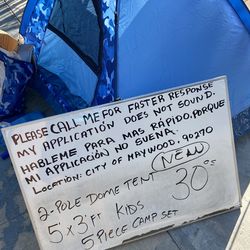 PLEASE CALL ME FOR FASTER RESPONSE
MY APPLICATION DOES NOT SOUND.
HABLEME PARA MAS RÁPIDO, PORQUE
MI APPLICACIÓN NO SUENA.
LOCATION: CITY OF MAYWOOD, 90270
2-POLE DOME TENT NEW
5x3 FT KIDS 30
5 PIECE CAMP SET